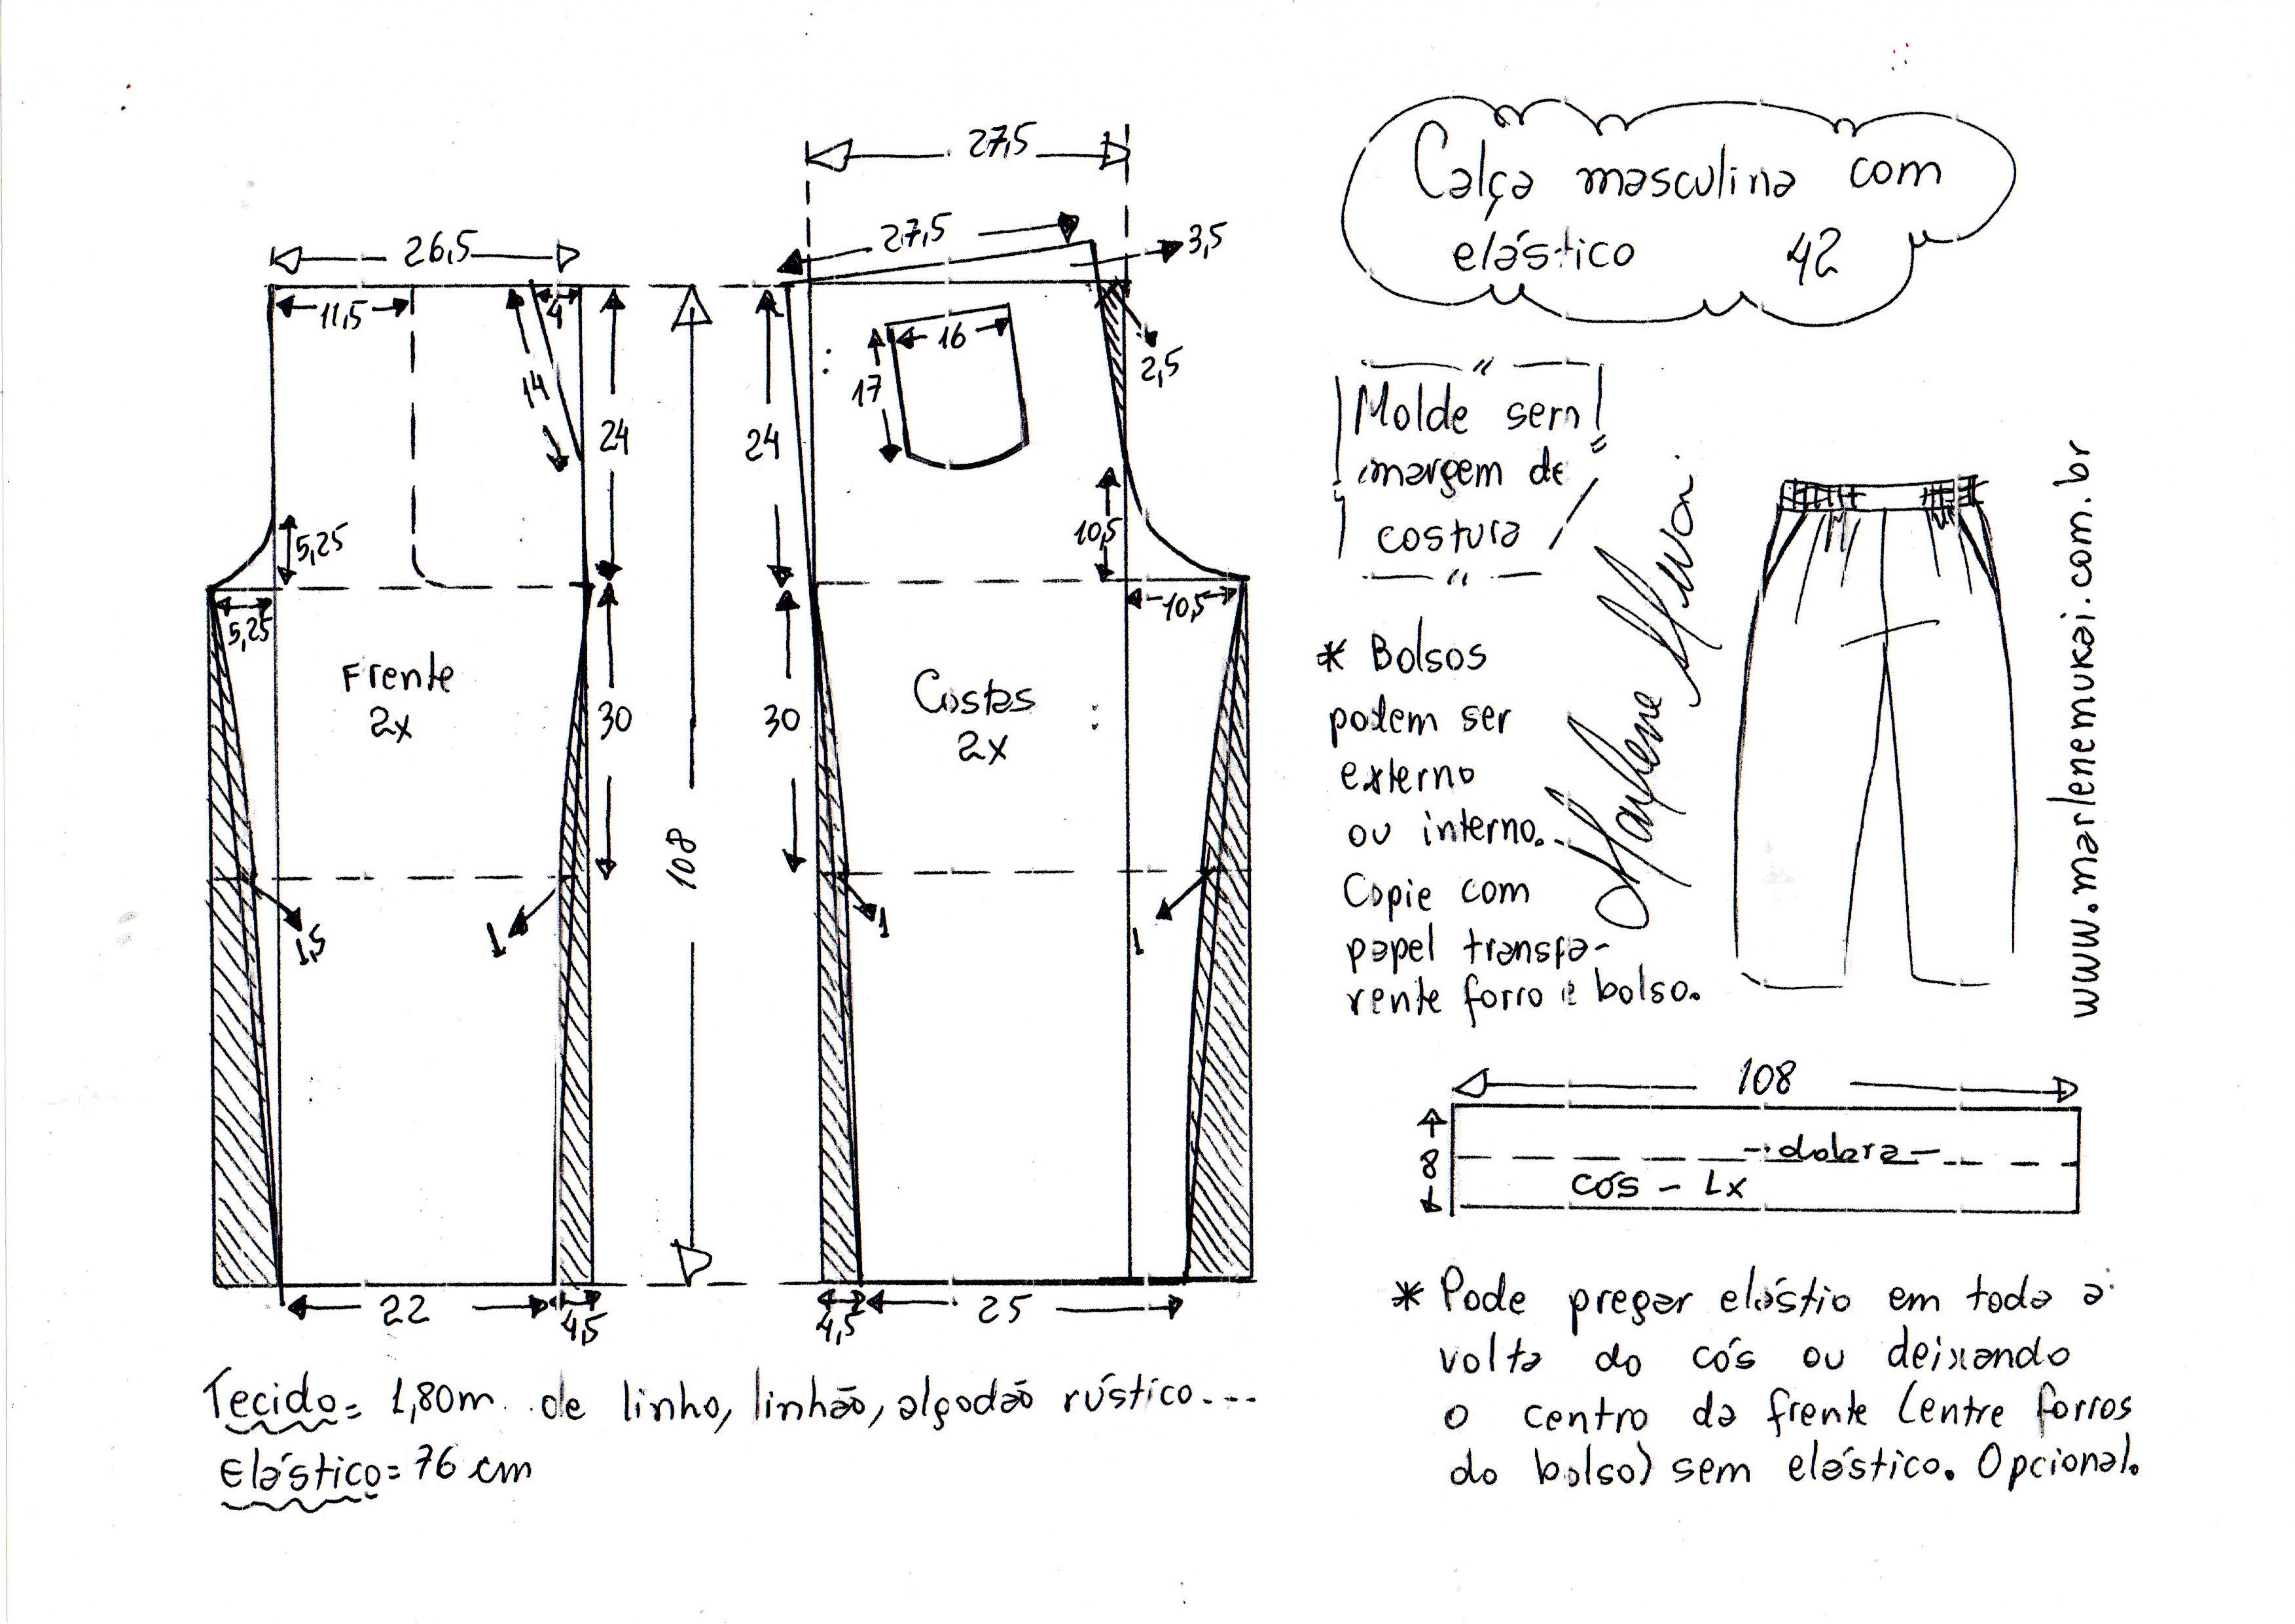 Calça masculina com
elástico 42
27,5
27,5
3,5
26,5
11,5
4
14
24
5,25
5,25
Frente
2x
30
1,5
1
22
4,5
108
24
16
17
2,5
10,5
10,5
Costas
2x
30
1
1
4,5
25
Molde sem
margem de
costura
* Bolsos
podem ser
externo
ou interno.
Copie com
papel transpa-
rente forro e bolso.
Marlene Mukai
www.marlenemukai.com.br
108
8
dobra
cós - 1x
* Pode pregar elástio em toda a
volta do cós ou deixando
o centro da frente (entre forros
do bolso) sem elástico. Opcional.
Tecido= 1,80m. de linho, linhão, algodão rústico...
Elástico= 76 cm